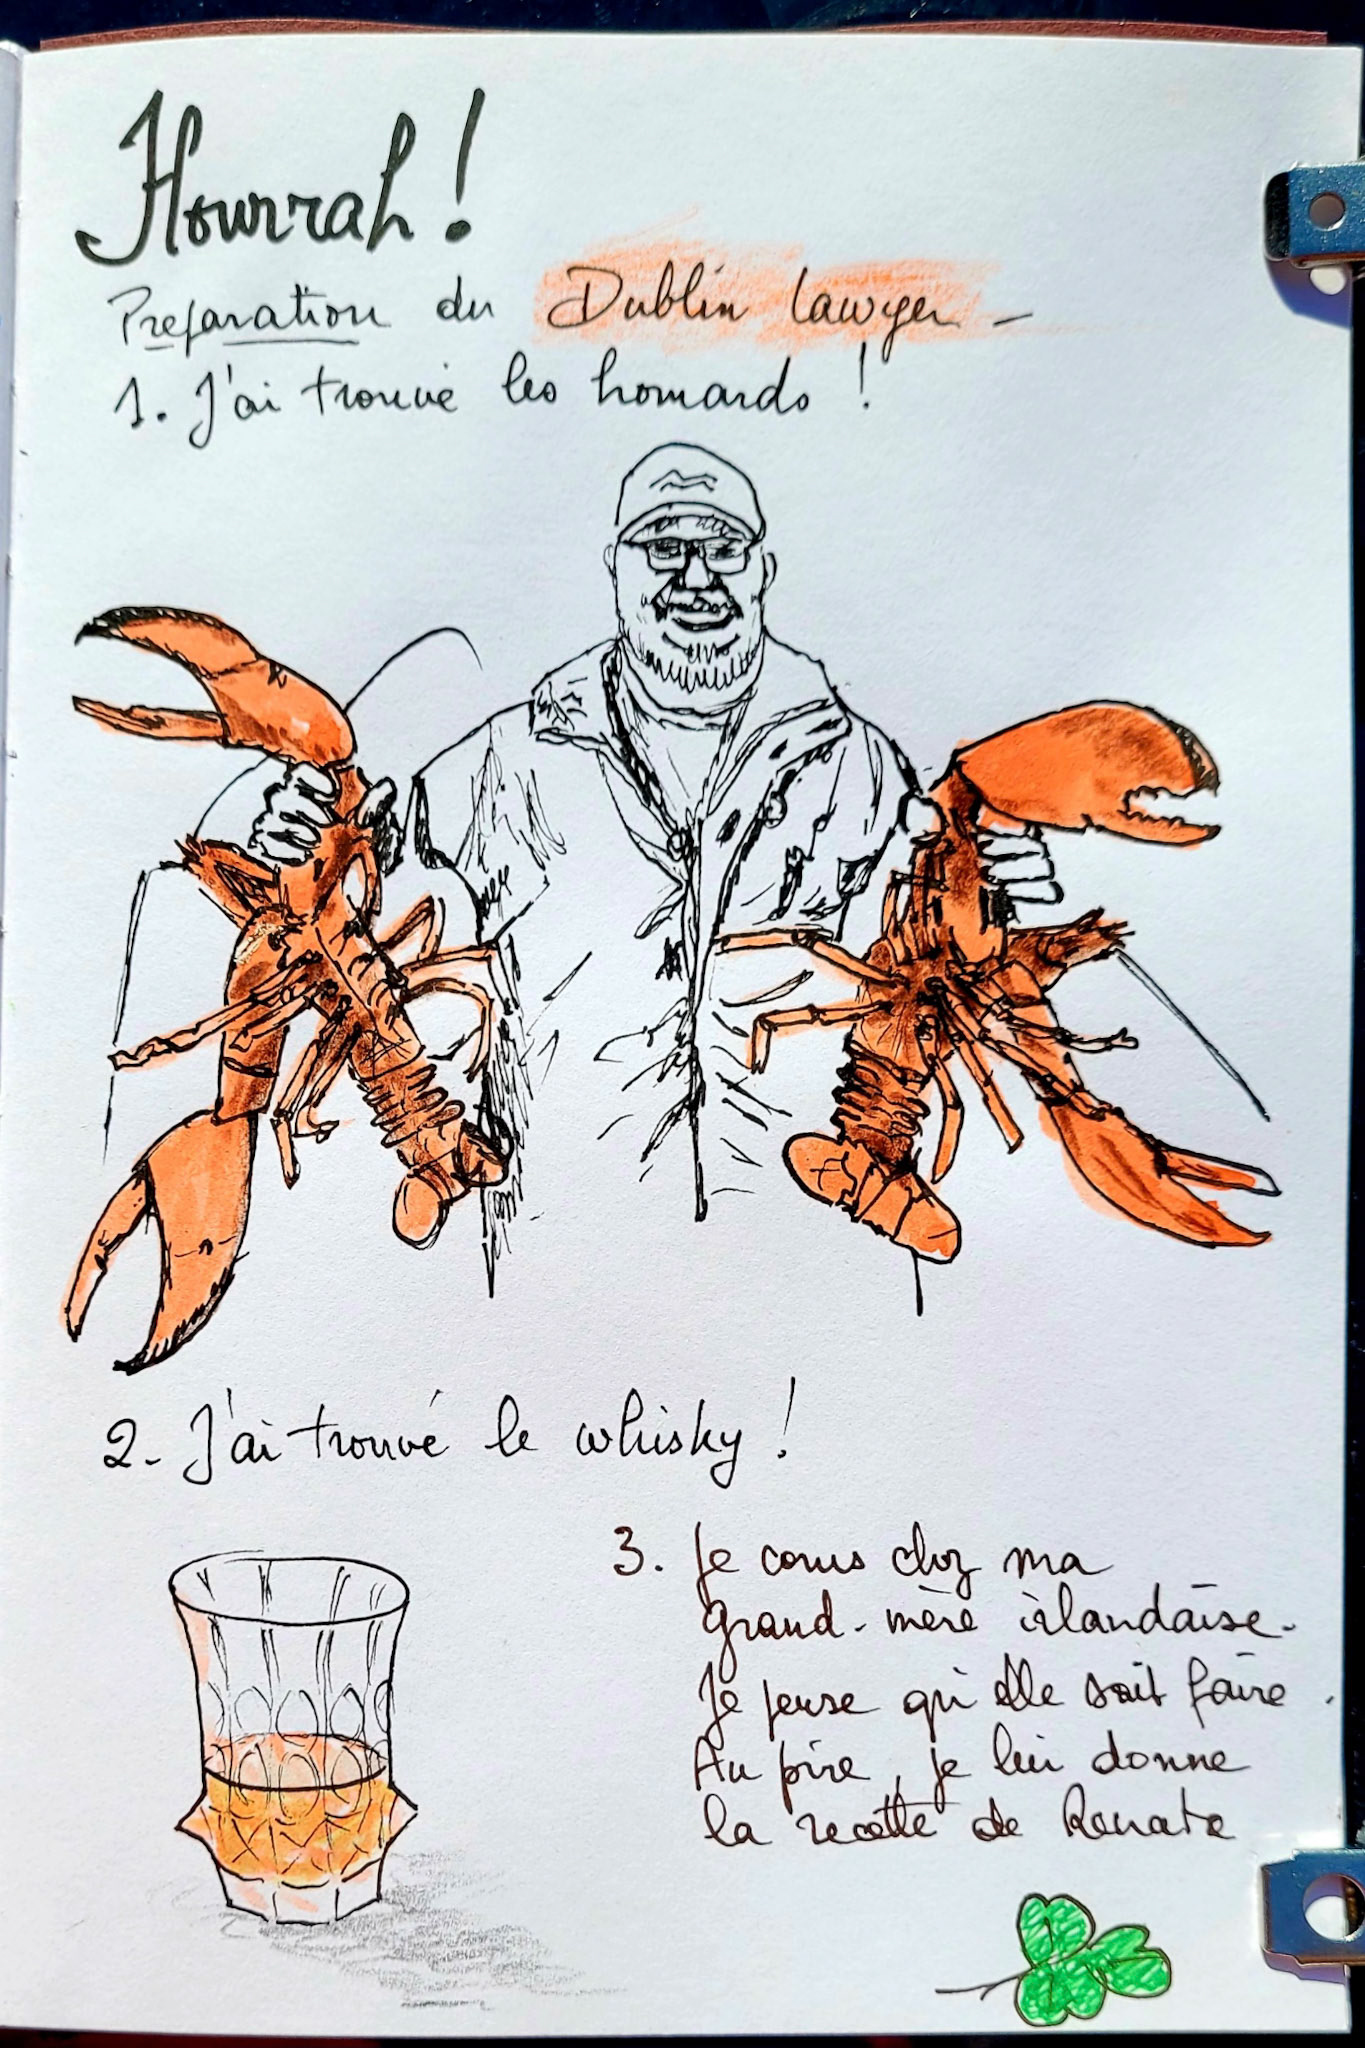 Hourrah !
Préparation du Dublin Lawyer -
1. J'ai trouvé les homards !
2. J'ai trouvé le whisky !
3. Je cours chez ma
grand-mère irlandaise.
Je pense qu'elle sait faire.
Au pire, je lui donne
la recette de Renata